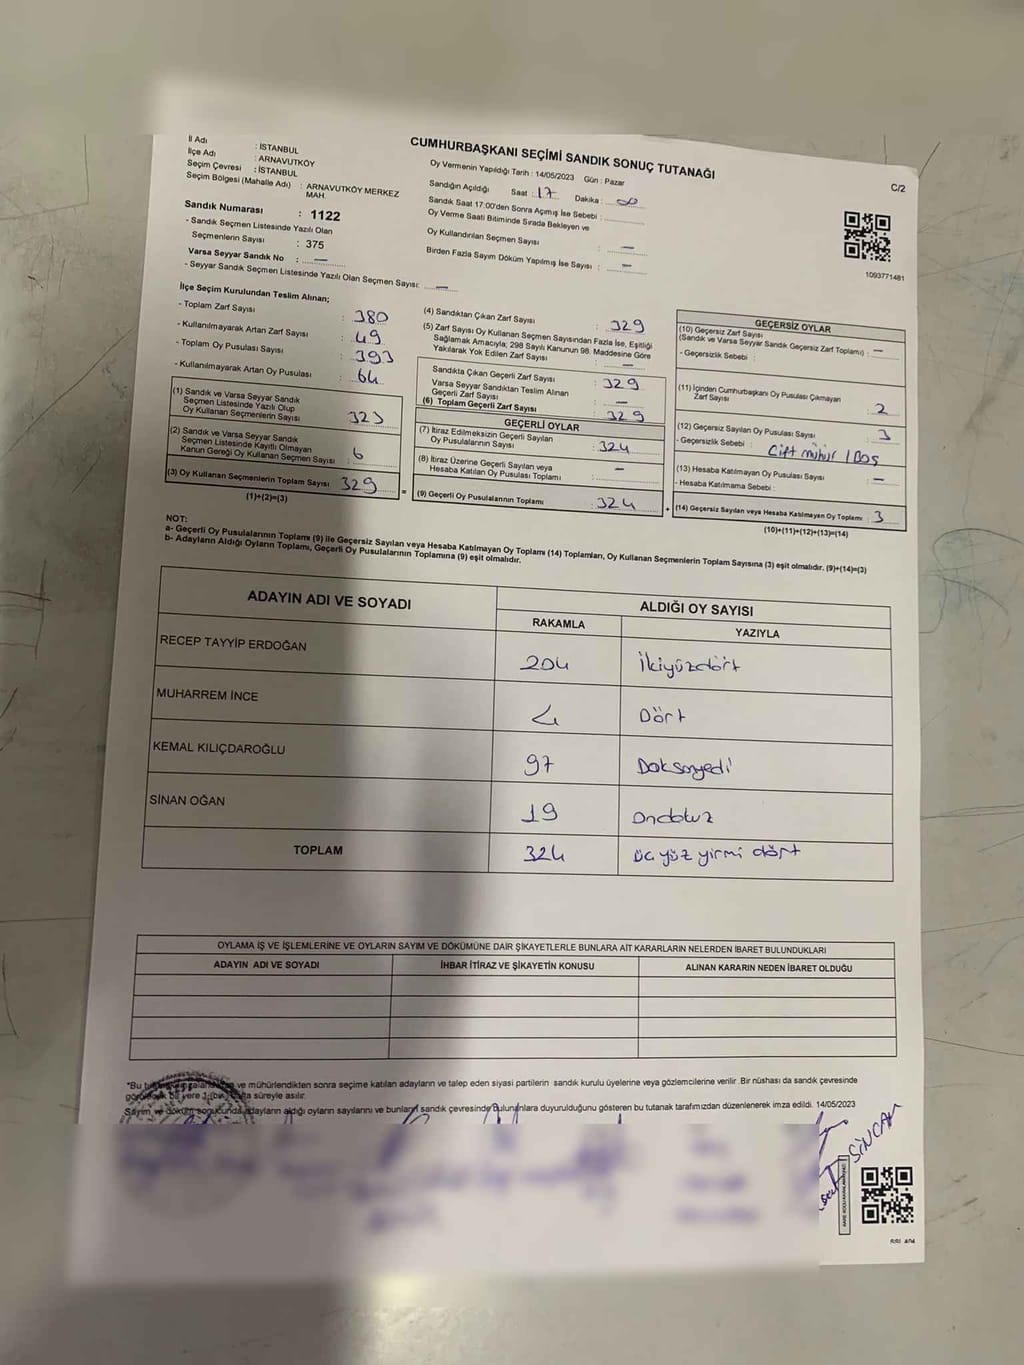 İl Adı : İSTANBUL
İlçe Adı : ARNAVUTKÖY
Seçim Çevresi : İSTANBUL
Seçim Bölgesi (Mahalle Adı) : ARNAVUTKÖY MERKEZ MAH.
Sandık Numarası : 1122
- Sandık Seçmen Listesinde Yazılı Olan
Seçmenlerin Sayısı : 375
Varsa Seyyar Sandık No : —
- Seyyar Sandık Seçmen Listesinde Yazılı Olan Seçmen Sayısı: —
CUMHURBAŞKANI SEÇİMİ SANDIK SONUÇ TUTANAĞI
C/2
Oy Vermenin Yapıldığı Tarih : 14/05/2023 Gün : Pazar
Sandığın Açıldığı Saat : 17 Dakika : 00
Sandık Saat 17:00'den Sonra Açımış İse Sebebi :
Oy Verme Saati Bitiminde Sırada Bekleyen ve
Oy Kullandırılan Seçmen Sayısı : —
Birden Fazla Sayım Döküm Yapılmış İse Sayısı : —
1093771481
İlçe Seçim Kurulundan Teslim Alınan;
- Toplam Zarf Sayısı : 380
- Kullanılmayarak Artan Zarf Sayısı : 49
- Toplam Oy Pusulası Sayısı : 393
- Kullanılmayarak Artan Oy Pusulası : 64
(1) Sandık ve Varsa Seyyar Sandık
Seçmen Listesinde Yazılı Olup
Oy Kullanan Seçmenlerin Sayısı : 323
(2) Sandık ve Varsa Seyyar Sandık
Seçmen Listesinde Kayıtlı Olmayan
Kanun Gereği Oy Kullanan Seçmen Sayısı : 6
(3) Oy Kullanan Seçmenlerin Toplam Sayısı : 329
(1)+(2)=(3)
=
(4) Sandıktan Çıkan Zarf Sayısı : 329
(5) Zarf Sayısı Oy Kullanan Seçmen Sayısından Fazla İse, Eşitliği
Sağlamak Amacıyla; 298 Sayılı Kanunun 98. Maddesine Göre
Yakılarak Yok Edilen Zarf Sayısı : —
Sandıkta Çıkan Geçerli Zarf Sayısı : 329
Varsa Seyyar Sandıktan Teslim Alınan
Geçerli Zarf Sayısı : —
(6) Toplam Geçerli Zarf Sayısı : 329
GEÇERLİ OYLAR
(7) İtiraz Edilmeksizin Geçerli Sayılan
Oy Pusulalarının Sayısı : 324
(8) İtiraz Üzerine Geçerli Sayılan veya
Hesaba Katılan Oy Pusulası Toplamı : —
(9) Geçerli Oy Pusulalarının Toplamı : 324
+
GEÇERSİZ OYLAR
(10) Geçersiz Zarf Sayısı
(Sandık ve Varsa Seyyar Sandık Geçersiz Zarf Toplamı) : —
- Geçersizlik Sebebi :
(11) İçinden Cumhurbaşkanı Oy Pusulası Çıkmayan
Zarf Sayısı : 2
(12) Geçersiz Sayılan Oy Pusulası Sayısı : 3
- Geçersizlik Sebebi : Çift mühür / Boş
(13) Hesaba Katılmayan Oy Pusulası Sayısı : —
- Hesaba Katılmama Sebebi :
(14) Geçersiz Sayılan veya Hesaba Katılmayan Oy Toplamı : 3
(10)+(11)+(12)+(13)=(14)
NOT:
a- Geçerli Oy Pusulalarının Toplamı (9) ile Geçersiz Sayılan veya Hesaba Katılmayan Oy Toplamı (14) Toplamları, Oy Kullanan Seçmenlerin Toplam Sayısına (3) eşit olmalıdır. (9)+(14)=(3)
b- Adayların Aldığı Oyların Toplamı, Geçerli Oy Pusulalarının Toplamına (9) eşit olmalıdır.
ADAYIN ADI VE SOYADI
ALDIĞI OY SAYISI
RAKAMLA YAZIYLA
RECEP TAYYİP ERDOĞAN 204 İkiyüzdört
MUHARREM İNCE 4 Dört
KEMAL KILIÇDAROĞLU 97 Doksanyedi
SİNAN OĞAN 19 Ondokuz
TOPLAM 324 üç yüz yirmi dört
OYLAMA İŞ VE İŞLEMLERİNE VE OYLARIN SAYIM VE DÖKÜMÜNE DAİR ŞİKAYETLERLE BUNLARA AİT KARARLARIN NELERDEN İBARET BULUNDUKLARI
ADAYIN ADI VE SOYADI İHBAR İTİRAZ VE ŞİKAYETİN KONUSU ALINAN KARARIN NEDEN İBARET OLDUĞU
*Bu ve mühürlendikten sonra seçime katılan adayların ve talep eden siyasi partilerin sandık kurulu üyelerine veya gözlemcilerine verilir. Bir nüshası da sandık çevresinde
bir yere süreyle asılır.
Sayım ve döküm sonucunda adayların aldığı oyların sayılarını ve bunların sandık çevresinde bulunanlara duyurulduğunu gösteren bu tutanak tarafımızdan düzenlenerek imza edildi. 14/05/2023
SİNCAN